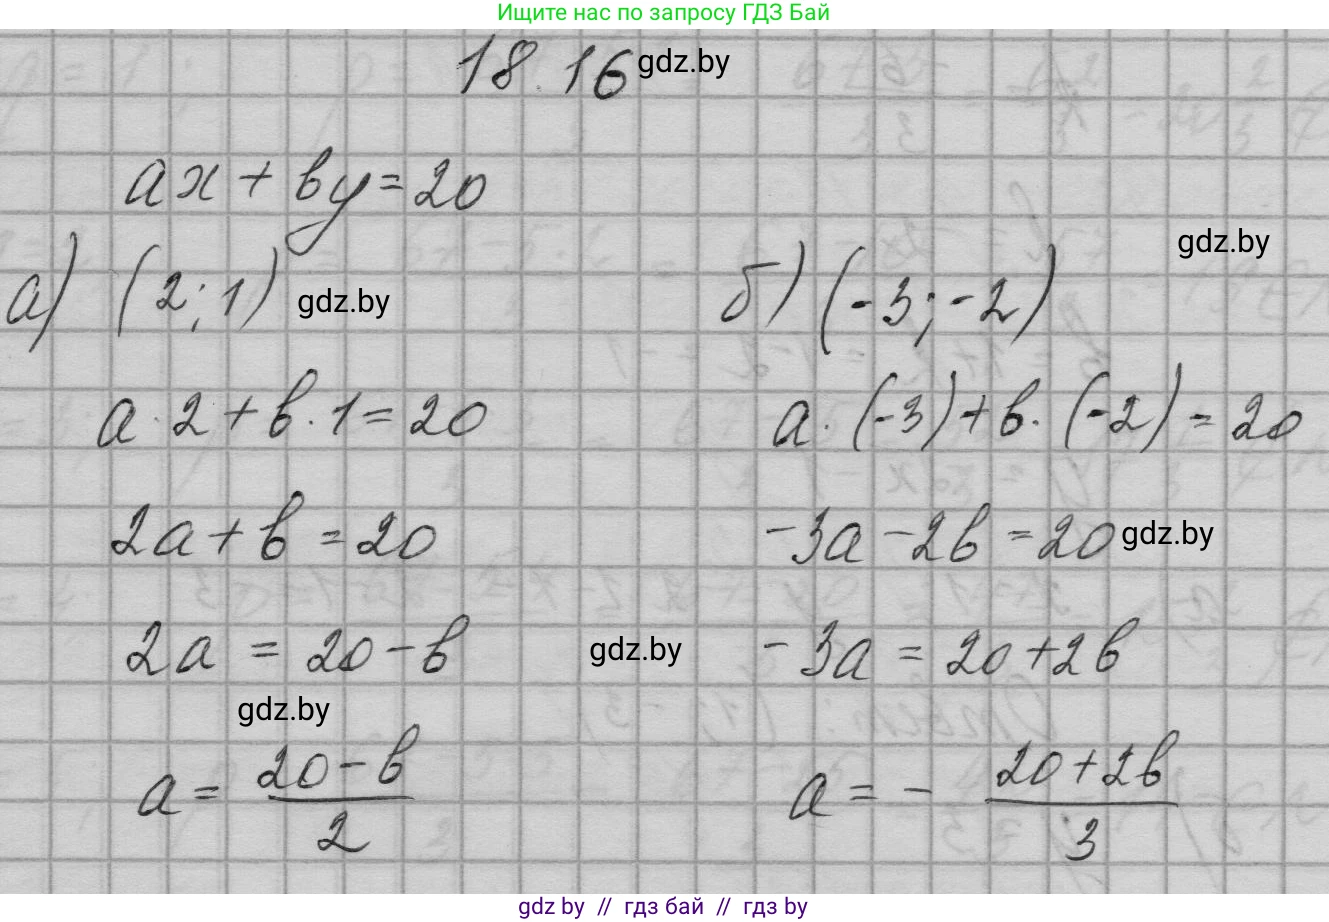 Ищите нас по запросу ГДЗ Бай
18.16 gdz.by
ax + by = 20
gdz.by
а) (2; 1) gdz.by
б) (-3; -2)
a · 2 + b · 1 = 20
a · (-3) + b · (-2) = 20
2a + b = 20
-3a - 2b = 20 gdz.by
2a = 20 - b
gdz.by
-3a = 20 + 2b
gdz.by
a = (20 - b)/2
a = - (20 + 2b)/3
gdz by // гдз бай // гдз by